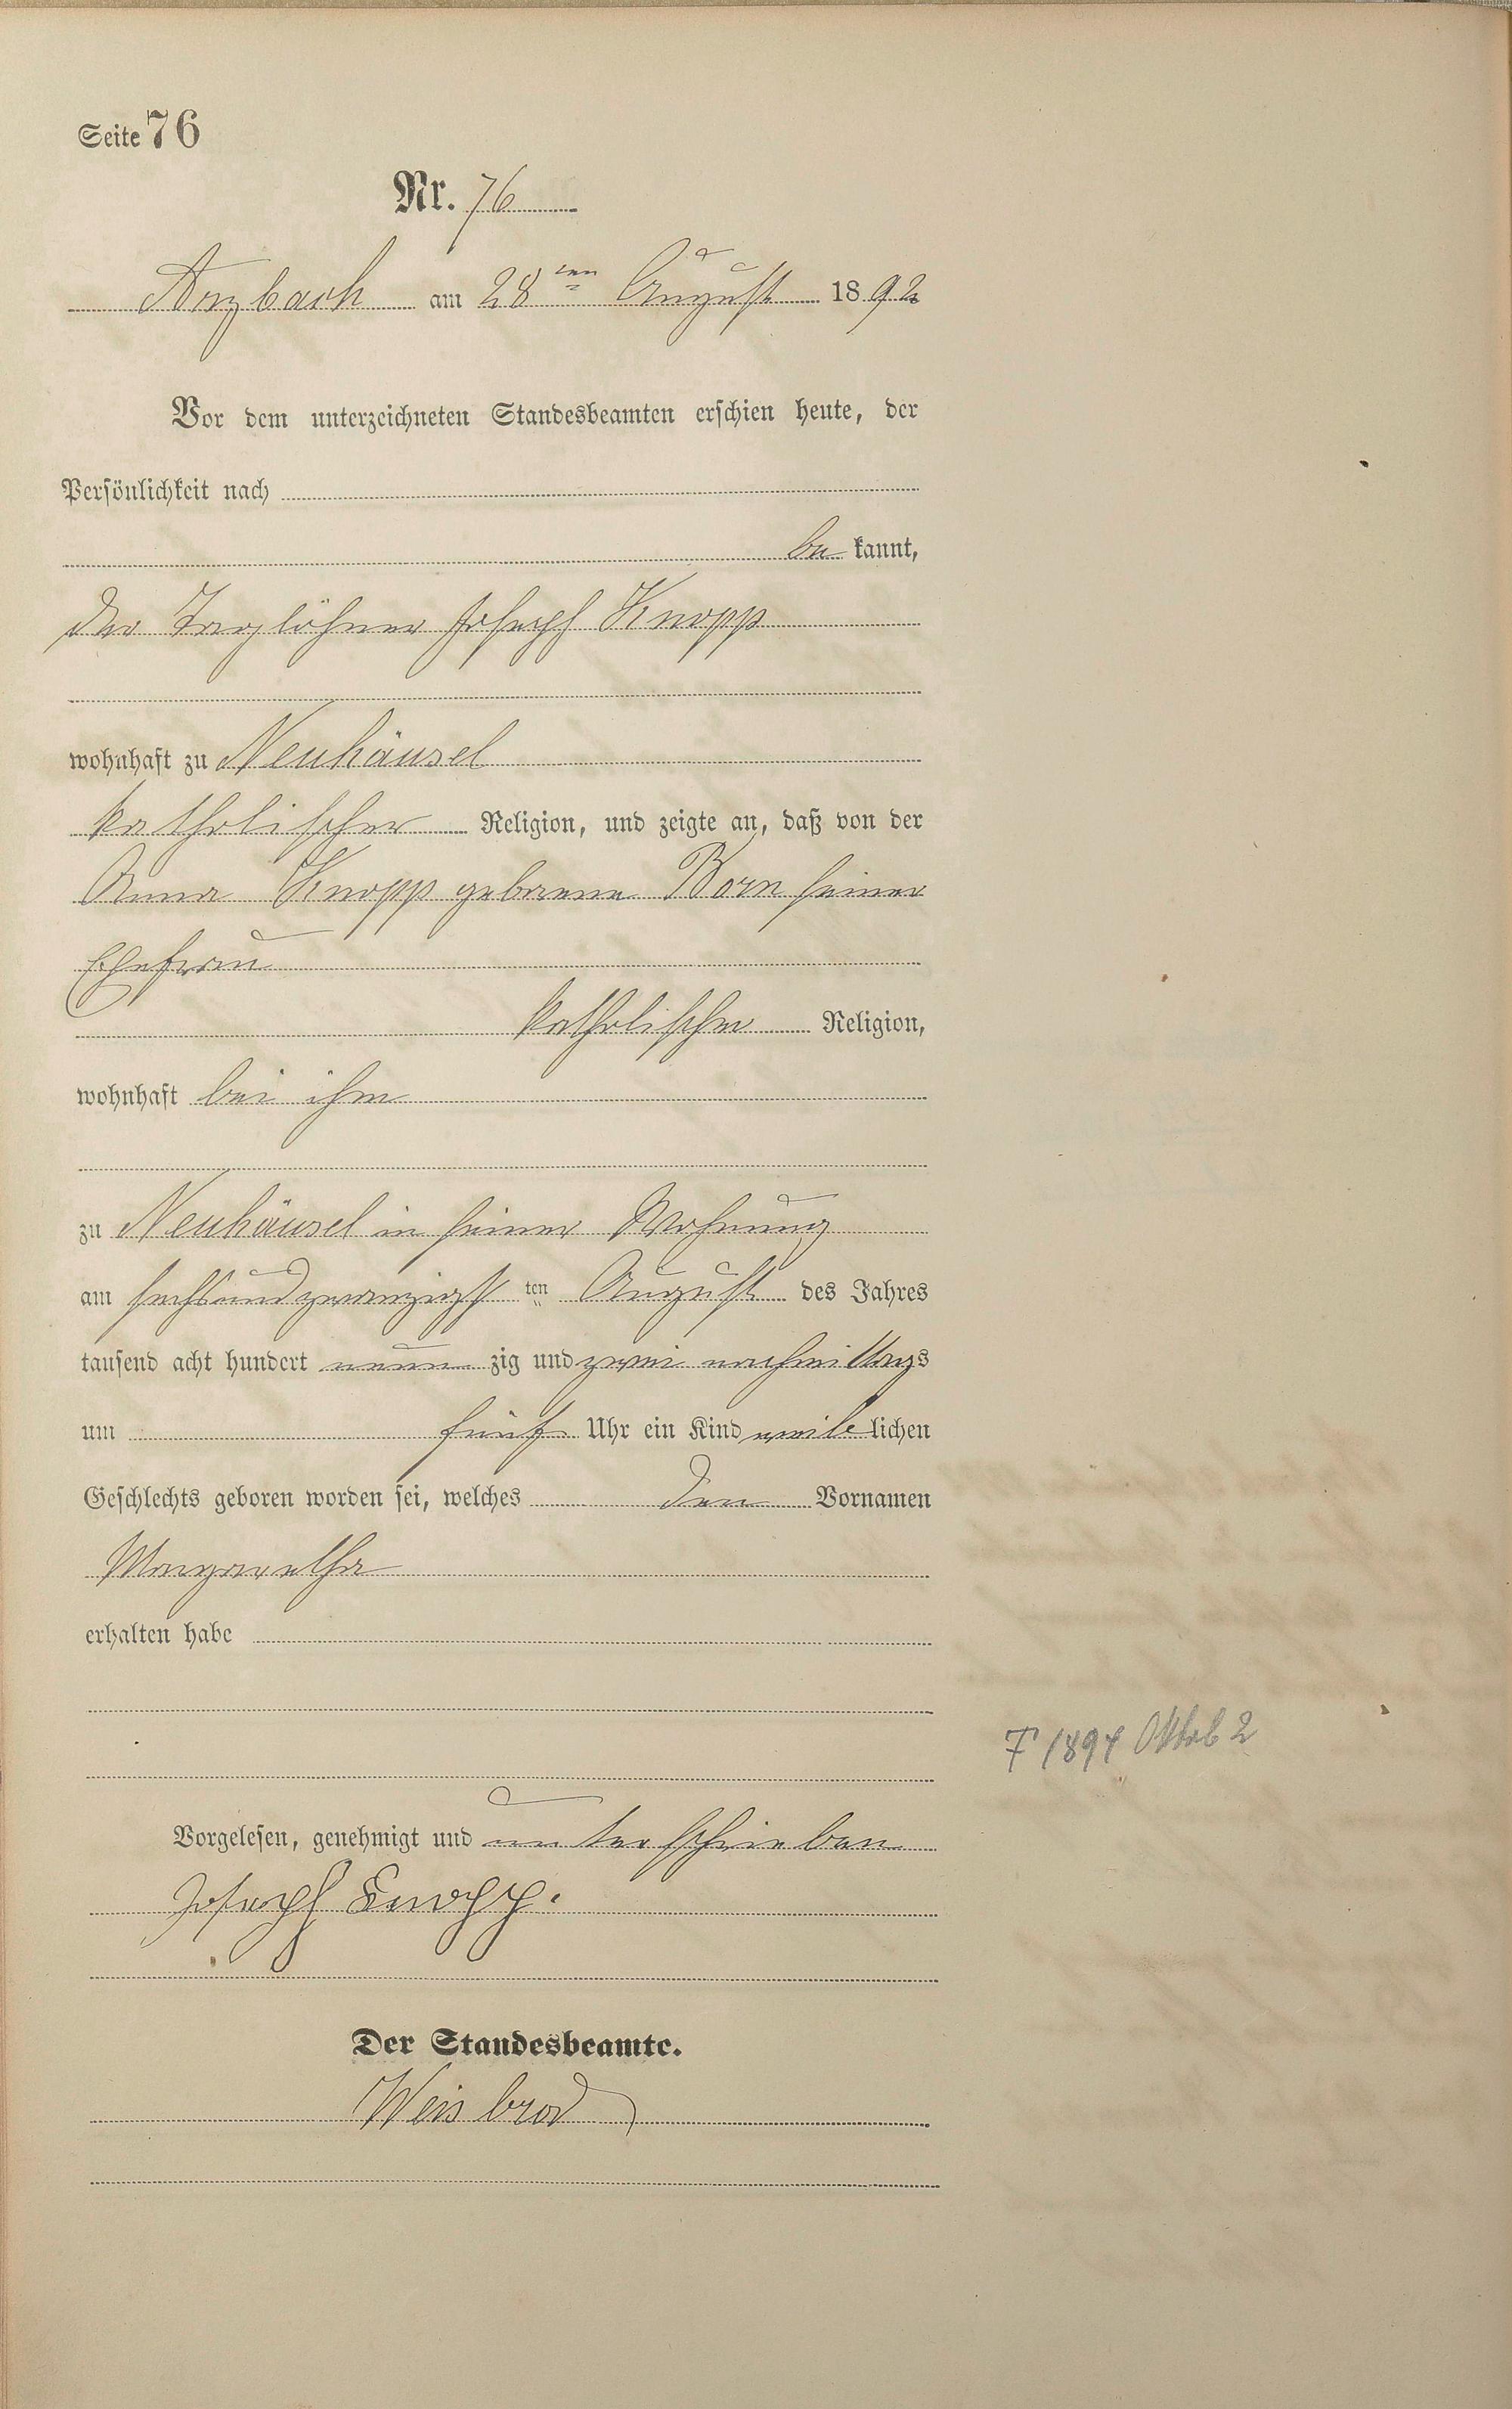 Seite 76
Nr. 76
Arzbach am 28ten August 1892
Vor dem unterzeichneten Standesbeamten erschien heute, der
Persönlichkeit nach
be kannt,
der Taglöhner Joseph Knopp
wohnhaft zu Neuhäusel
katholischer Religion, und zeigte an, daß von der
Anna Knopp geborene Born seiner
Ehefrau
katholischer Religion,
wohnhaft bei ihm
zu Neuhäusel in seiner Wohnung
am sechsundzwanzigst ten August des Jahres
tausend acht hundert neun zig und zwei nachmittags
um fünf Uhr ein Kind weib lichen
Geschlechts geboren worden sei, welches den Vornamen
Margaretha
erhalten habe
† 1894 Oktob 2
Vorgelesen, genehmigt und unterschrieben
Joseph Knopp.
Der Standesbeamte.
Weisbrod